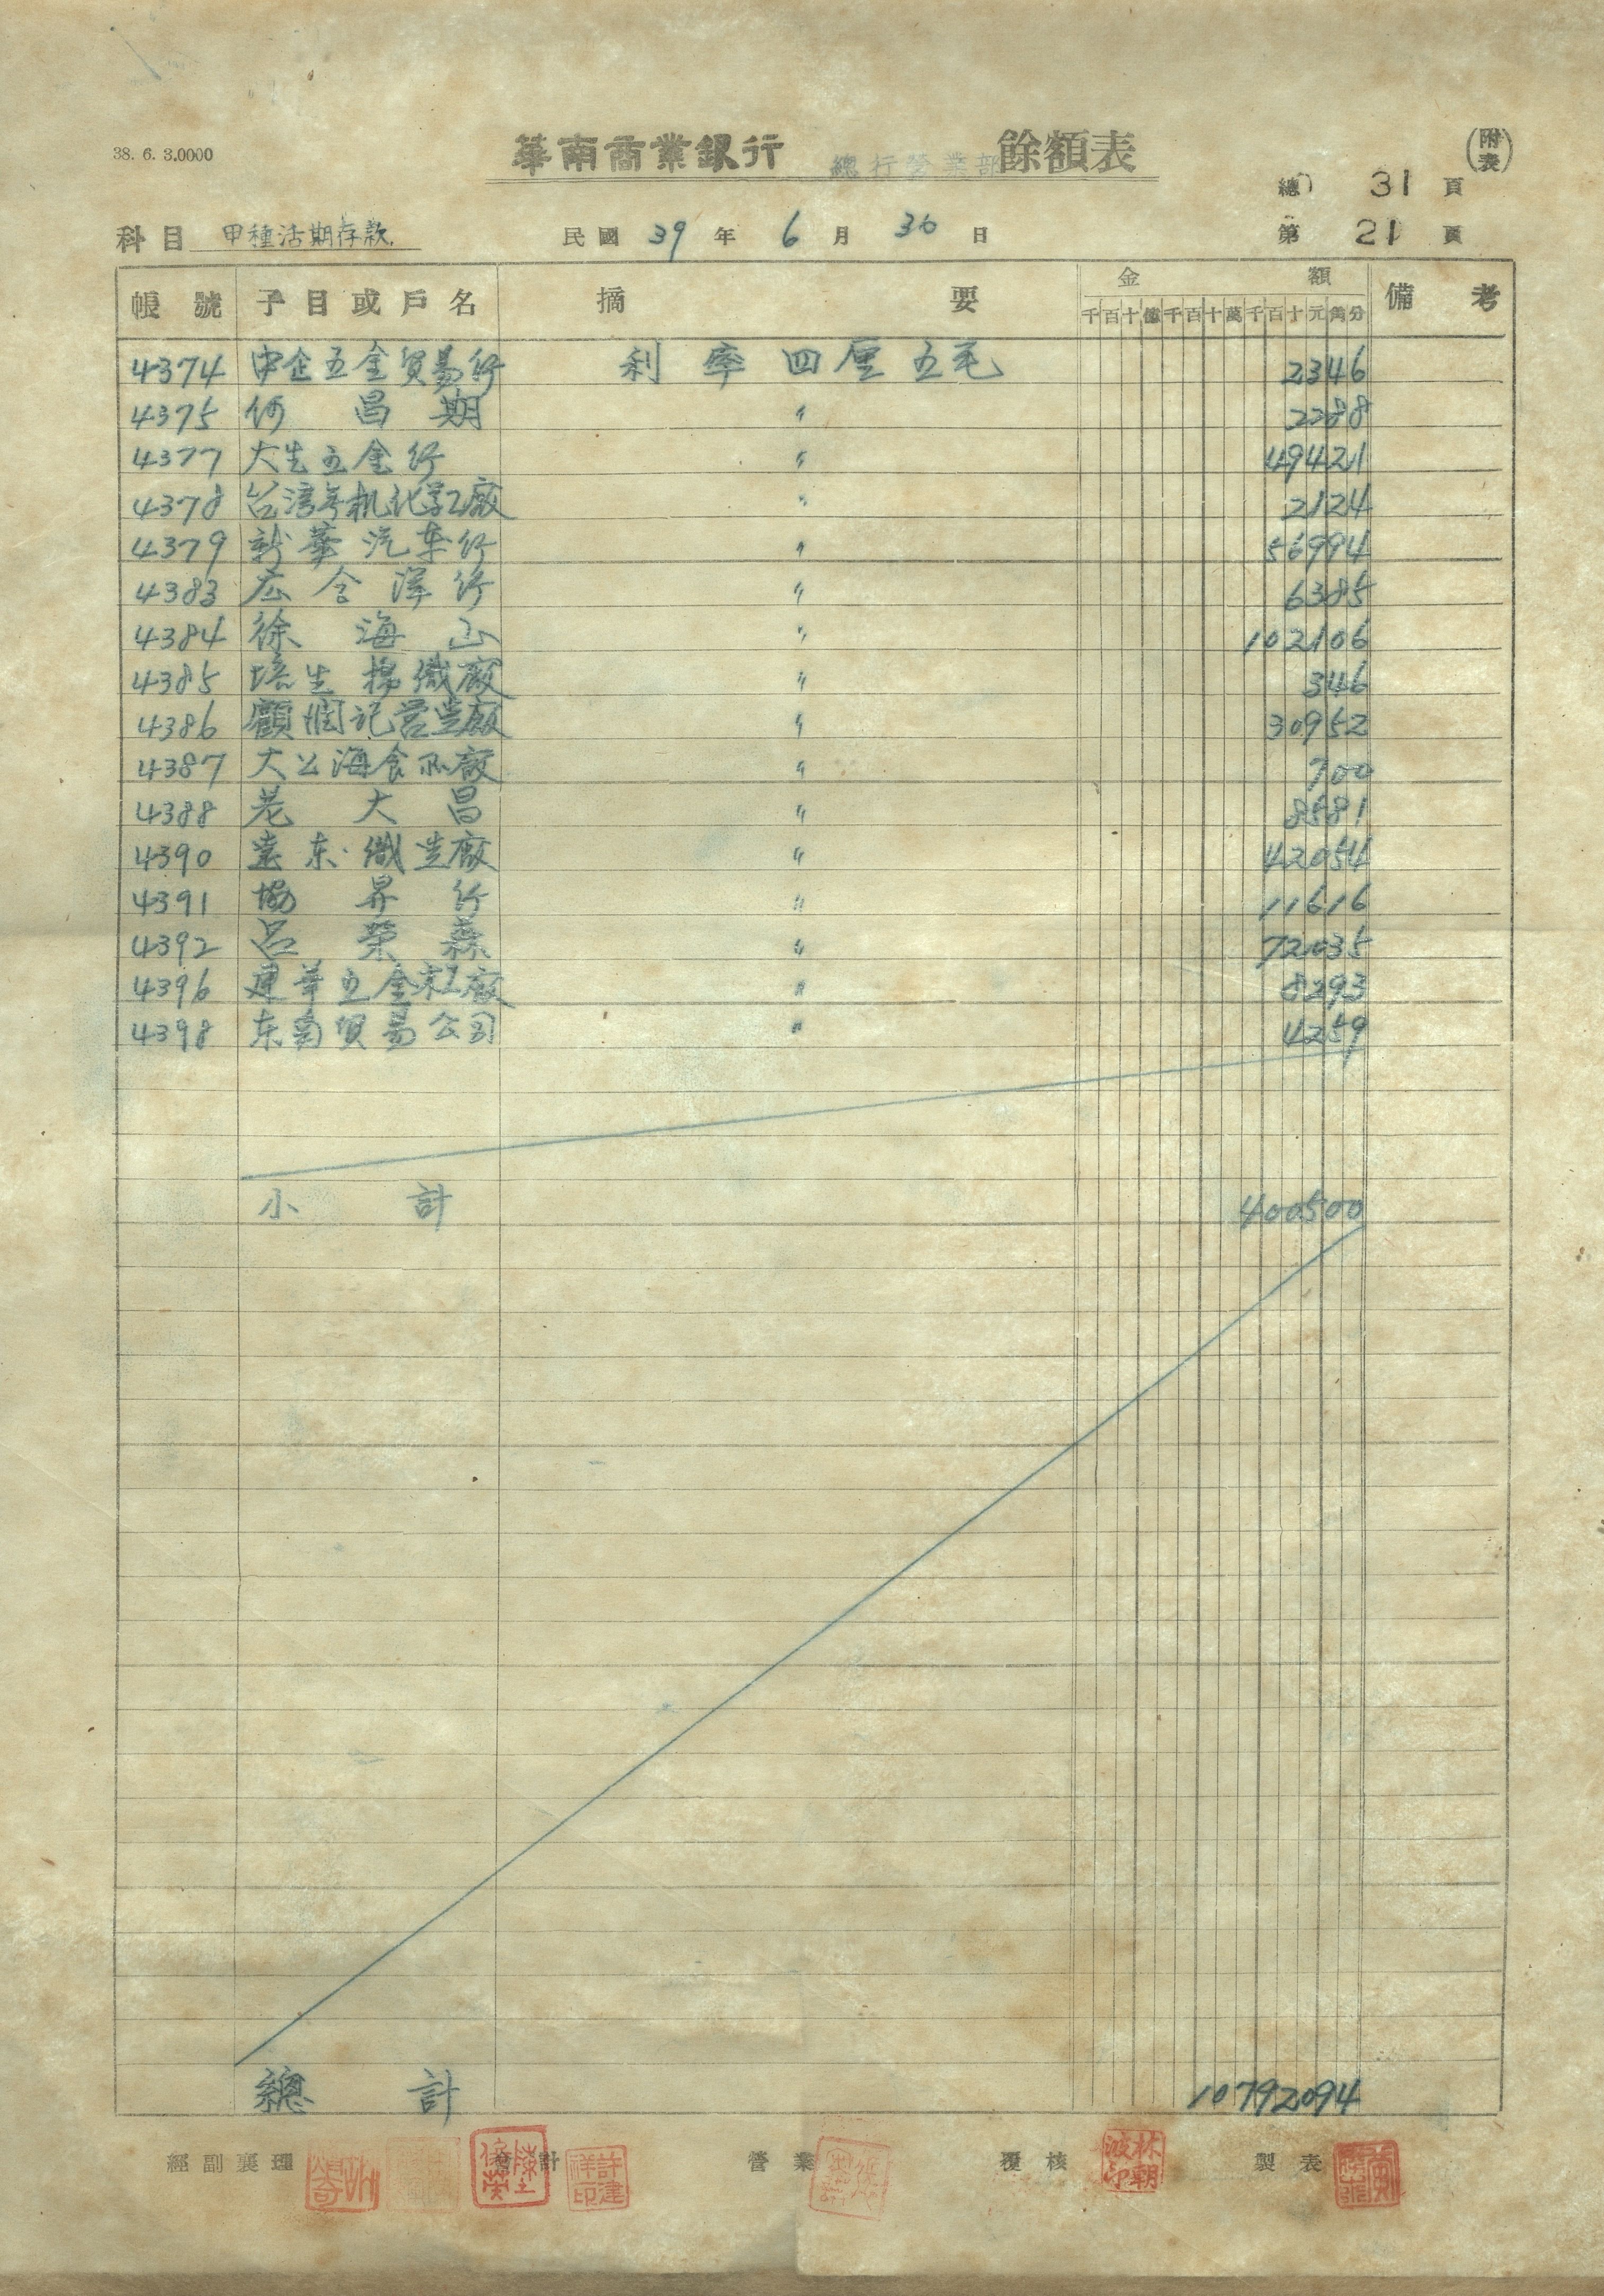 38. 6. 3.0000
華南商業銀行 總行營業部 餘額表
(附表)
總 31 頁
科目 甲種活期存款 民國 39 年 6 月 30 日 第 21 頁
帳號 子目或戶名 摘要 金額 備考
千百十億千百十萬千百十元角分
4374 中企五金貿易行 利率四厘五毛 2346
4375 何昌期 〃 2288
4377 大生五金行 〃 49421
4378 台湾有机化学工廠 〃 2124
4379 新華汽車行 〃 56994
4383 広合洋行 〃 6385
4384 徐海山 〃 102106
4385 培生棉織廠 〃 346
4386 顧潤記营造廠 〃 30952
4387 大公海食品廠 〃 700
4388 老大昌 〃 8581
4390 遠东織造廠 〃 42054
4391 協昇行 〃 11616
4392 呂榮森 〃 72035
4396 建華五金工廠 〃 8293
4398 东南貿易公司 〃 4259
小計 400500
總計 10792094
經副襄理 會計 營業 覆核 製表
許建祥印
林朝波印